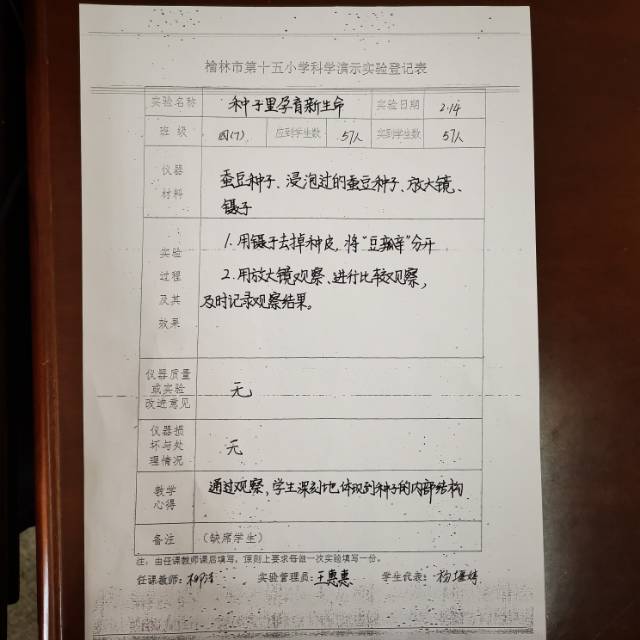 榆林市第十五小学科学演示实验登记表
实验名称 种子里孕育新生命 实验日期 2.14
班 级 四(7) 应到学生数 57人 实到学生数 57人
仪器
材料
蚕豆种子、浸泡过的蚕豆种子、放大镜、
镊子
实验
过程
及其
效果
1.用镊子去掉种皮,将"豆瓣"分开
2.用放大镜观察、进行比较观察,
及时记录观察结果。
仪器质量
或实验
改进意见
无
仪器损
坏与处
理情况
无
教学
心得
通过观察,学生深刻地体现到种子的内部结构
备注 (缺席学生)
注:由任课教师课后填写,原则上要求每做一次实验填写一份。
任课教师: 实验管理员:王惠惠 学生代表:杨